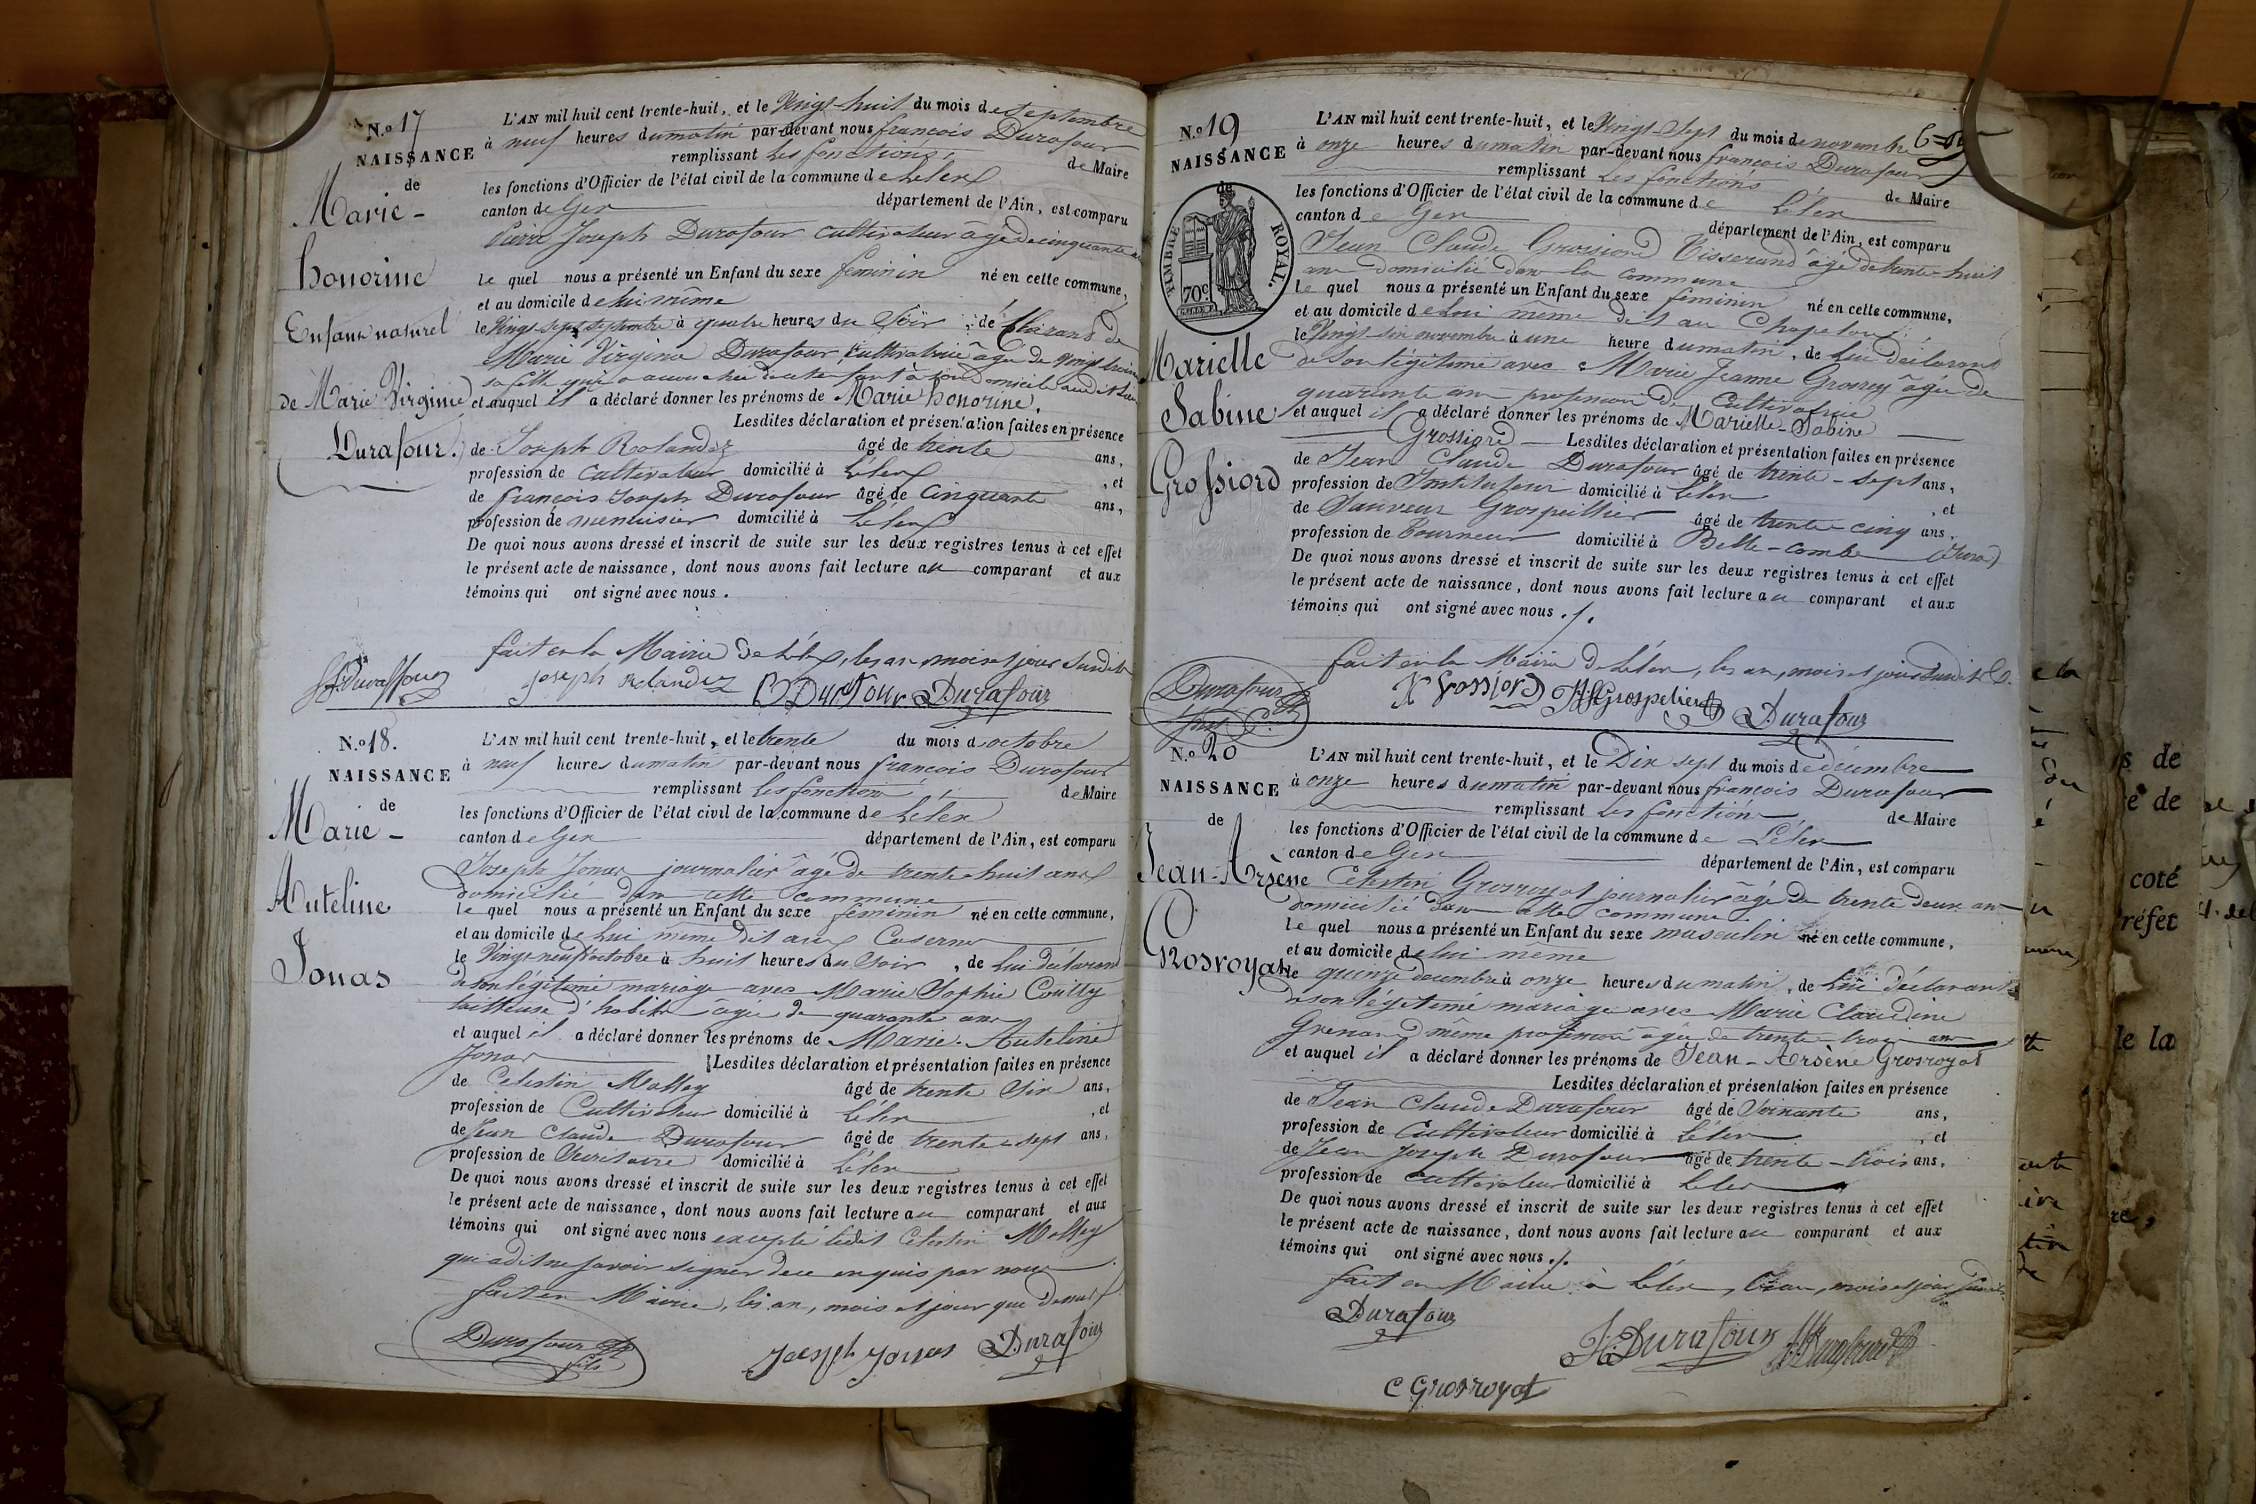 N.o 17
NAISSANCE
de
Marie-
honorine
Enfant naturel
de Marie Virginie
Durafour.
L'AN mil huit cent trente-huit, et le Vingt-huit du mois de septembre
à neuf heures du matin par-devant nous françois Durafour
remplissant les fonctions de Maire
les fonctions d'Officier de l'état civil de la commune de Lélex
canton de Gex département de l'Ain, est comparu
Pierre Joseph Durafour cultivateur âgé de cinquante
Le quel nous a présenté un Enfant du sexe féminin né en cette commune,
et au domicile de lui même
le Vingt-sept septembre à quatre heures du Soir, de
Marie Virginie Durafour, cultivatrice âgée de vingt trois
sa fille qui a accouchée à son domicile audit Lieu
et auquel il a déclaré donner les prénoms de Marie honorine.
Lesdites déclaration et présentation faites en présence
de Joseph Rolandez âgé de trente ans,
profession de cultivateur domicilié à Lélex, et
de françois Joseph Durafour âgé de Cinquante ans,
profession de menuisier domicilié à Lélex
De quoi nous avons dressé et inscrit de suite sur les deux registres tenus à cet effet
le présent acte de naissance, dont nous avons fait lecture au comparant et aux
témoins qui ont signé avec nous.
fait en la Mairie de Lélex, les an, mois et jour Susdits
Joseph Rolandez Durafour
N.o 18.
NAISSANCE
de
Marie-
Auteline
Jonas
L'AN mil huit cent trente-huit, et le trente du mois d'octobre
à neuf heures du matin par-devant nous françois Durafour
remplissant les fonctions de Maire
les fonctions d'Officier de l'état civil de la commune de Lélex
canton de Gex département de l'Ain, est comparu
Joseph Jonas journalier âgé de trente-huit ans
domicilié dans cette commune
le quel nous a présenté un Enfant du sexe féminin né en cette commune,
et au domicile de Lui même dit aux Casernes
le Vingt-neuf octobre à huit heures du Soir, de Lui déclarant
de son légitime mariage avec Marie Sophie Coutty
tailleuse d'habits âgée de quarante ans
et auquel il a déclaré donner les prénoms de Marie-Auteline
Jonas Lesdites déclaration et présentation faites en présence
de Celestin Mathey âgé de trente Six ans,
profession de Cultivateur domicilié à Lélex, et
de Jean Claude Durafour âgé de trente-sept ans,
profession de Secrétaire domicilié à Lélex
De quoi nous avons dressé et inscrit de suite sur les deux registres tenus à cet effet
le présent acte de naissance, dont nous avons fait lecture au comparant et aux
témoins qui ont signé avec nous excepté ledit Celestin Mathey
qui a dit ne savoir signer de ce enquis par nous
fait en Mairie, les an, mois et jour que dessus
Durafour fils Joseph Jonas Durafour
N.o 19
NAISSANCE
de
TIMBRE ROYAL.
70c.
Marielle
Sabine
Grossiord
L'AN mil huit cent trente-huit, et le Vingt-Sept du mois de novembre
à onze heures du matin par-devant nous françois Durafour
remplissant les fonctions de Maire
les fonctions d'Officier de l'état civil de la commune de Lélex
canton de Gex département de l'Ain, est comparu
Jean Claude Grossiord Tisserand âgé de trente-huit
ans domicilié dans la commune
le quel nous a présenté un Enfant du sexe féminin né en cette commune,
et au domicile de Lui même dit au
le Vingt-six novembre à une heure du matin, de Lui déclarant
de son légitime avec Marie Jeanne Grosrey âgée de
quarante ans profession de Cultivatrice
et auquel il a déclaré donner les prénoms de Marielle-Sabine
Grossiord Lesdites déclaration et présentation faites en présence
de Jean Claude Durafour âgé de trente-sept ans,
profession de Instituteur domicilié à Lélex, et
de Sauveur Grospellier âgé de trente cinq ans,
profession de Tourneur domicilié à Belle-combe (Jura)
De quoi nous avons dressé et inscrit de suite sur les deux registres tenus à cet effet
le présent acte de naissance, dont nous avons fait lecture au comparant et aux
témoins qui ont signé avec nous./.
fait en la Mairie de Lélex, les an, mois et jour Susdits
Durafour Grossiord Grospelier Durafour
N.o 20
NAISSANCE
de
Jean-Arsène
Grosroyat
L'AN mil huit cent trente-huit, et le Dix sept du mois de décembre
à onze heures du matin par-devant nous françois Durafour
remplissant les fonctions de Maire
les fonctions d'Officier de l'état civil de la commune de Lélex
canton de Gex département de l'Ain, est comparu
Celestin Grosroyat journalier âgé de trente deux ans
domicilié dans cette commune
le quel nous a présenté un Enfant du sexe masculin né en cette commune,
et au domicile de lui même
le quinze décembre à onze heures du matin, de Lui déclarant
de son légitime mariage avec Marie Claudine
Grenard même profession âgée de trente trois ans
et auquel il a déclaré donner les prénoms de Jean-Arsène Grosroyat
Lesdites déclaration et présentation faites en présence
de Jean Claude Durafour âgé de Soixante ans,
profession de Cultivateur domicilié à Lélex, et
de Jean Joseph Durafour âgé de trente-trois ans,
profession de cultivateur domicilié à Lélex
De quoi nous avons dressé et inscrit de suite sur les deux registres tenus à cet effet
le présent acte de naissance, dont nous avons fait lecture au comparant et aux
témoins qui ont signé avec nous./.
fait en Mairie à Lélex, les an, mois et jour susdits
Durafour
Durafour
C Grosroyat
s de
e de
coté
réfet
le la